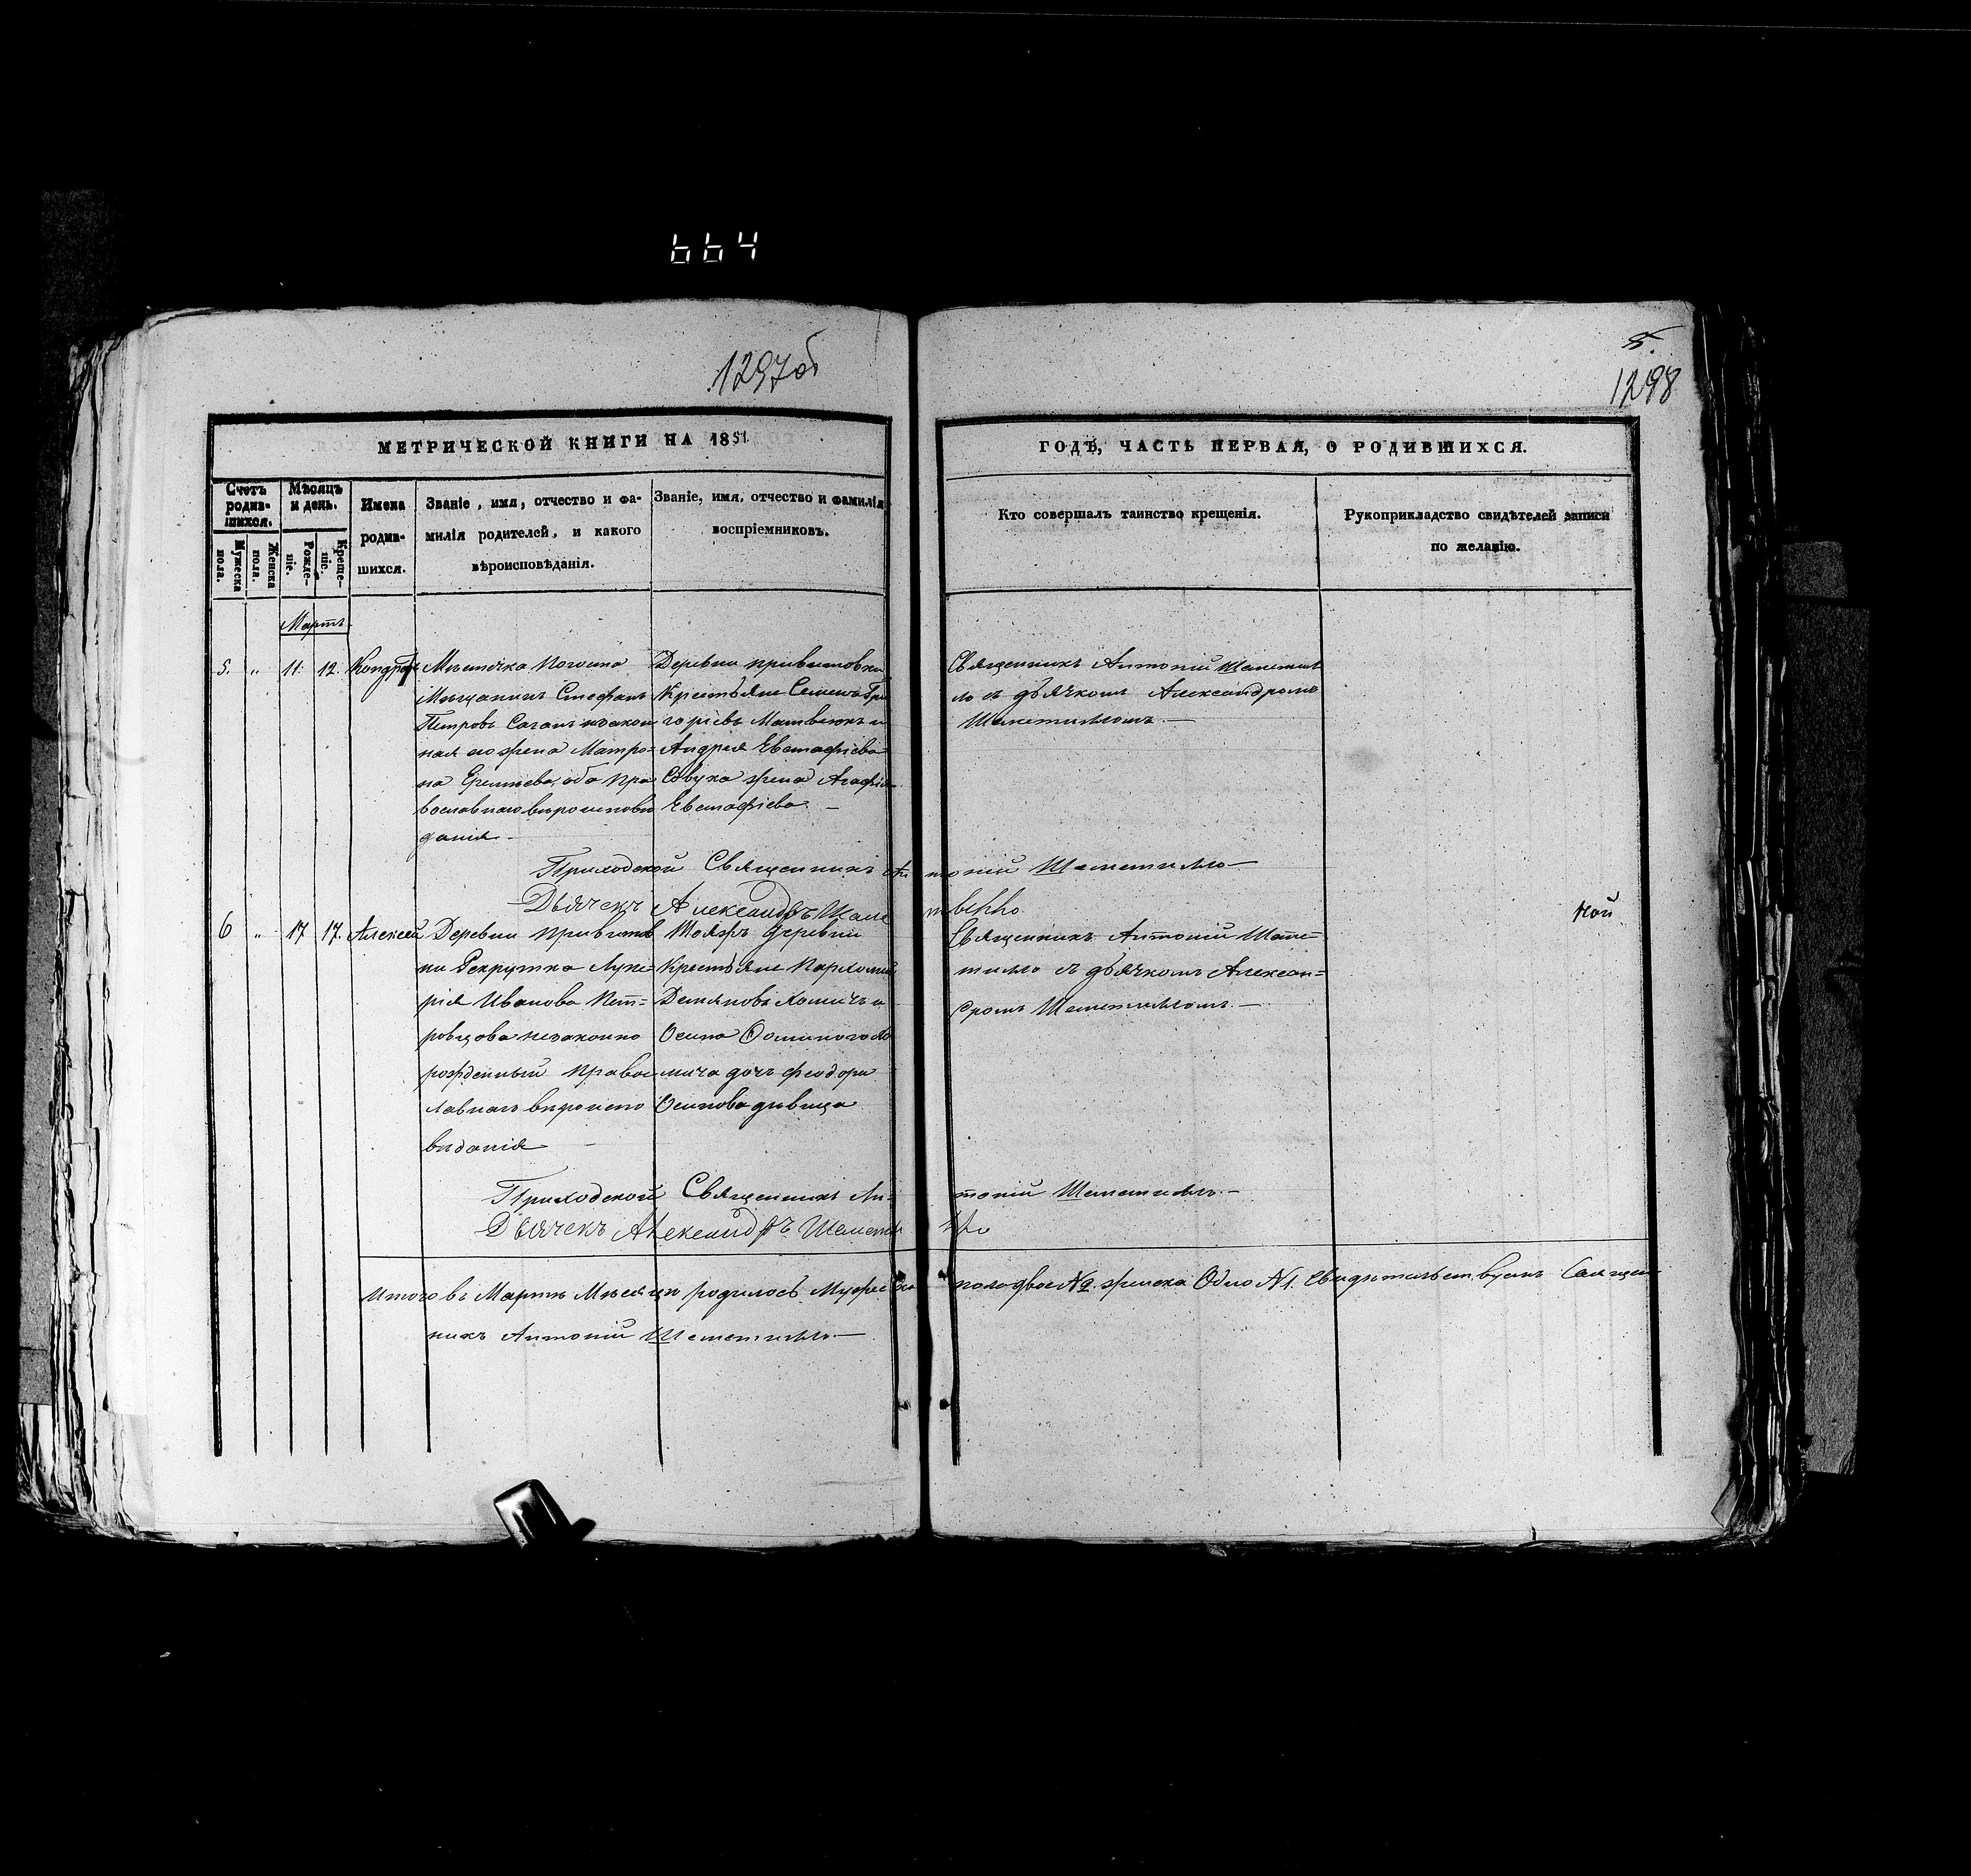 664
1297об
5.
1298
МЕТРИЧЕСКОЙ КНИГИ НА 1851
ГОДЪ, ЧАСТЬ ПЕРВАЯ, О РОДИВШИХСЯ.
Счетъ родив-шихся.
Мужеска пола.
Женска пола.
Мѣсяцъ и день.
Рожде-ніе.
Креще-ніе.
Имена
родив-
шихся.
Званіе, имя, отчество и фа-
милія родителей, и какого
вѣроисповѣданія.
Званіе, имя, отчество и фамилія
воспріемниковъ.
Кто совершалъ таинство крещенія.
Рукоприкладство свидѣтелей записи
по желанію.
Мартъ
5. „ 11. 12. Кондратъ
Мѣстечка Погоста
Мѣщанинъ Стефанъ
Петровъ Саганъ и закон
ная его жена Матро=
на, оба пра
вославнаго вѣроисповѣ
данія
Деревни
Крестьяне Семенъ Гри
горіевъ Матвеюкъ и
Андрея Евстафіева
жена Агафія
Евстафіева. —
Священникъ Антоній Шеметил
ло съ дьячкомъ Александромъ
Шеметилломъ. —
Приходской Священникъ Антоній Шеметилло —
Дьячекъ Александръ
6 „ 17 17. Алексей
Деревни
ни Рекрутка Луке=
рія Иванова Пет=
ровцова незаконно
рожденный Правос
лавнаго вѣроиспо
вѣданія
Тояжъ деревни
Крестьяне Пархомій
Демяновъ Хомичъ и
Осипа
мича дочь Феодора
Осипова дѣвица
Священникъ Антоній Шеме=
тилло съ дьячкомъ Алексан=
дромъ Шеметилломъ. —
кой
Приходской Священникъ Ан=тоній Шеметилло. —
Дьячекъ Александръ Шеметилло
Итого въ Мартѣ Мѣсяцѣ родилось Мужеска пола двое №2. женска Одно №1. Свидѣтельствуетъ Священ
никъ Антоній Шеметилло. —